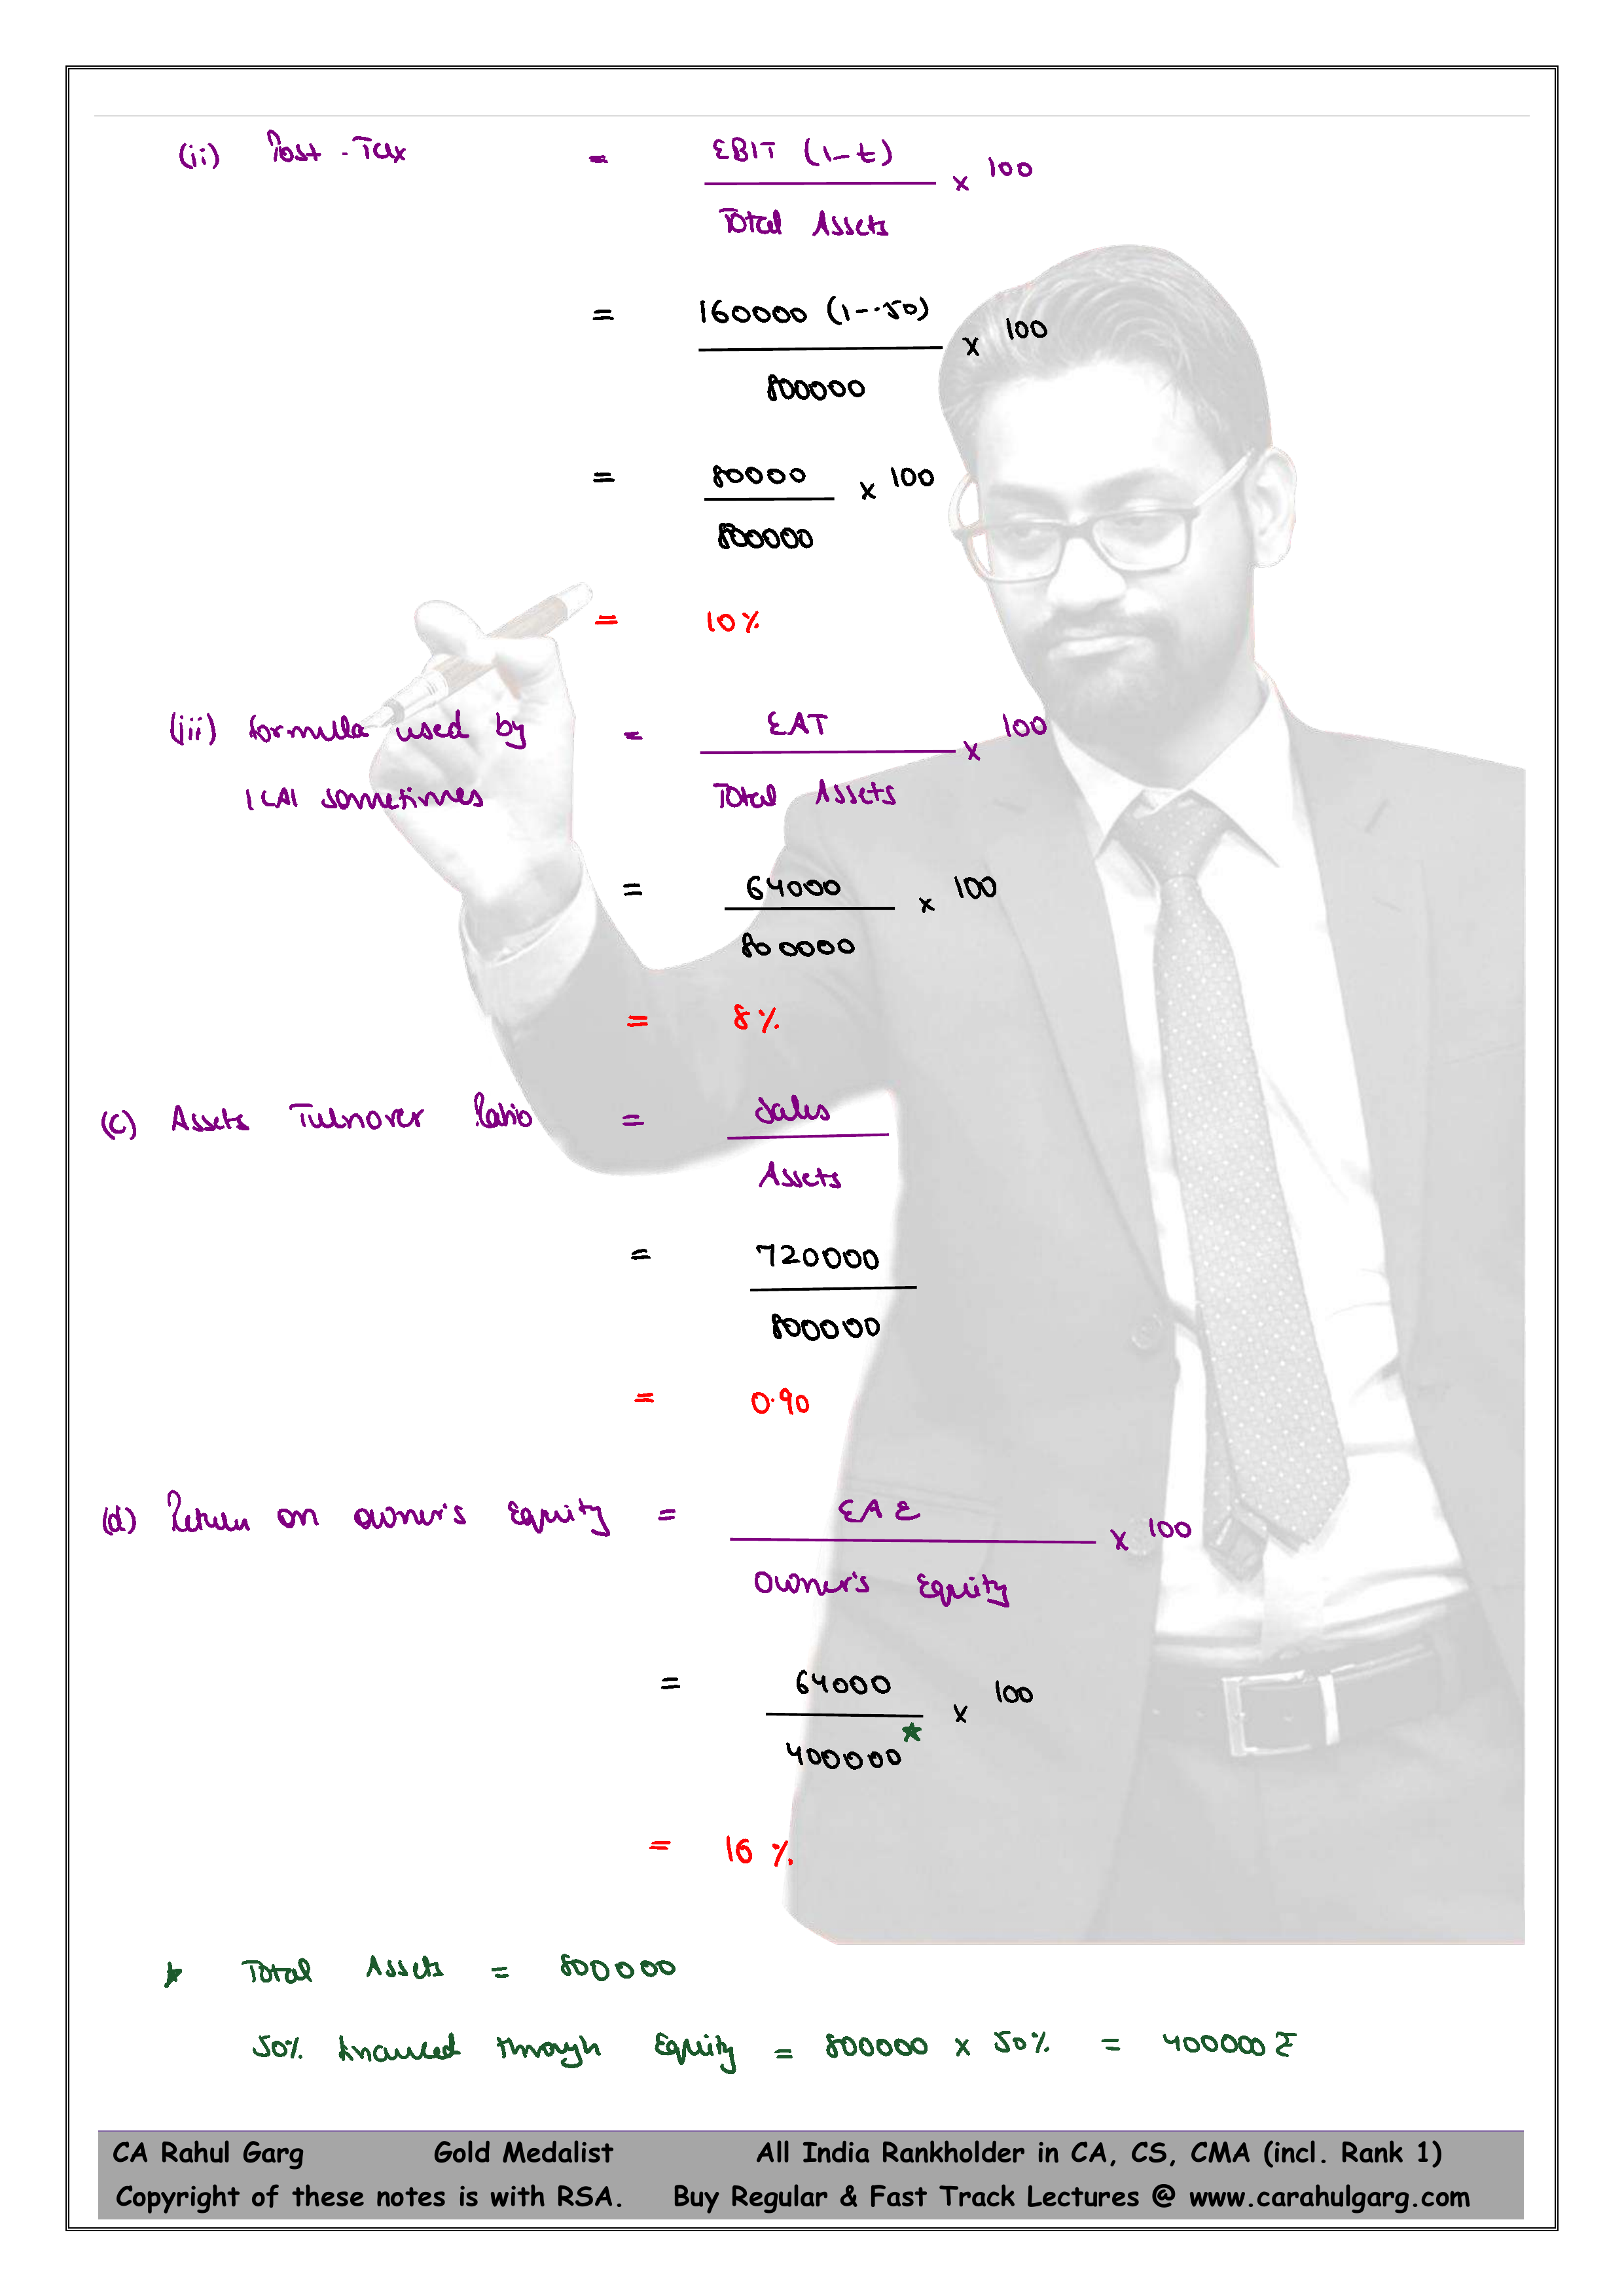 (ii) Post-Tax = EBIT (1-t) / Total Assets x 100
= 160000 (1-.50) / 800000 x 100
= 80000 / 800000 x 100
= 10%
(iii) formula used by = EAT / Total Assets x 100
ICAI sometimes
= 64000 / 800000 x 100
= 8%
(c) Assets Turnover Ratio = Sales / Assets
= 720000 / 800000
= 0.90
(d) Return on owner's Equity = EAE / Owner's Equity x 100
= 64000 / 400000* x 100
= 16%
* Total Assets = 800000
50% financed through Equity = 800000 x 50% = 400000 ₹
CA Rahul Garg Gold Medalist All India Rankholder in CA, CS, CMA (incl. Rank 1)
Copyright of these notes is with RSA. Buy Regular & Fast Track Lectures @ www.carahulgarg.com